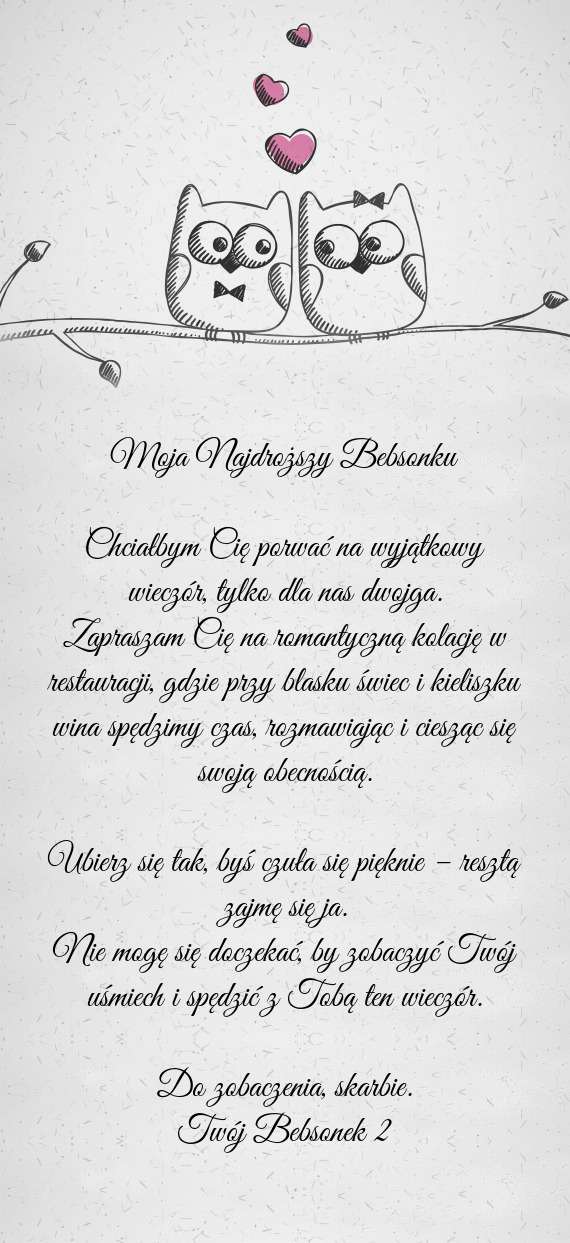 Moja Najdroższy Bebsonku
Chciałbym Cię porwać na wyjątkowy
wieczór, tylko dla nas dwojga.
Zapraszam Cię na romantyczną kolację w
restauracji, gdzie przy blasku świec i kieliszku
wina spędzimy czas, rozmawiając i ciesząc się
swoją obecnością.
Ubierz się tak, byś czuła się pięknie – resztą
zajmę się ja.
Nie mogę się doczekać, by zobaczyć Twój
uśmiech i spędzić z Tobą ten wieczór.
Do zobaczenia, skarbie.
Twój Bebsonek 2